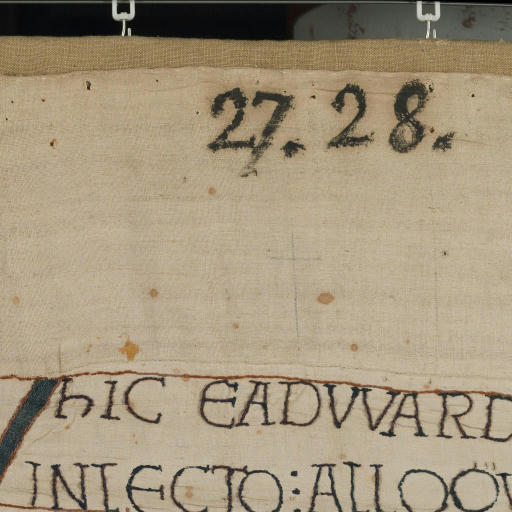 27. 28.
hIC EADVVARD
INLECTO: ALLOQV